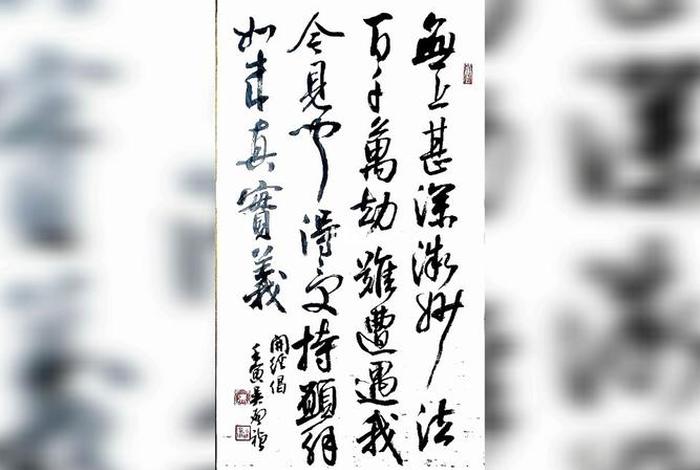 無上甚深微妙法
百千萬劫難遭遇我
今見聞得受持願解
如来真實義
開經偈
壬寅吳